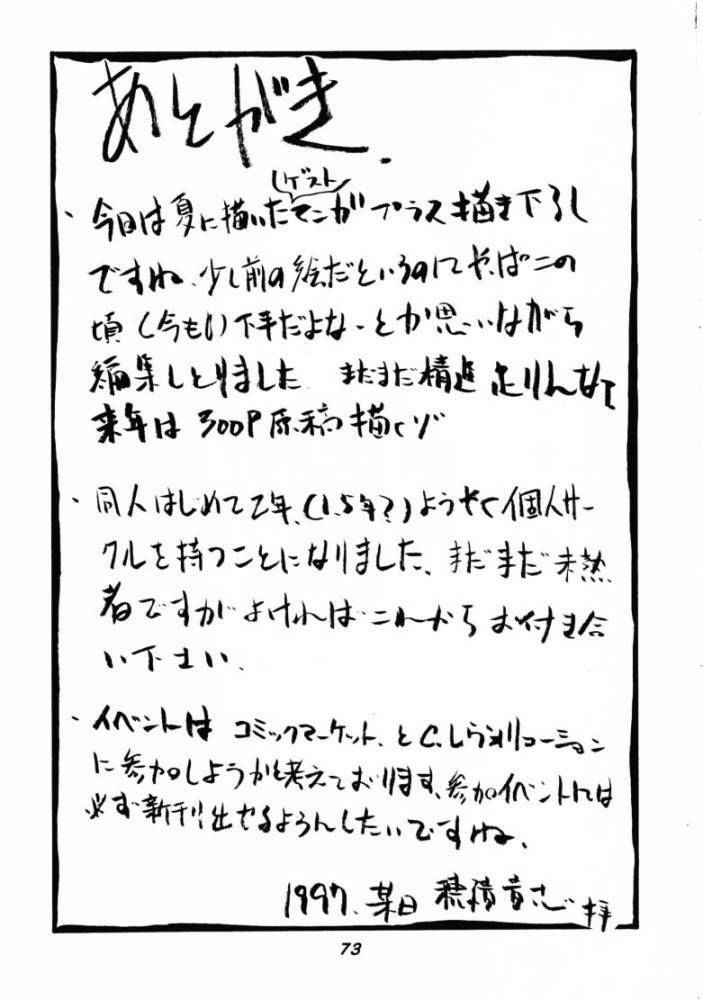 あとがき.
ゲスト
・今日は夏に描いたマンガプラス描き下ろし
ですね、少し前の絵だというのにやっぱこの
頃(今も!)下手だよなーとか思いながら
編集しとりました まだまだ精進足りんなて
来年は300P原稿描くゾ
・同人はじめて2年、(1.5年?)ようやく個人サー
クルを持つことになりました、まだまだ未熟
者ですがよければこれからお付き合
い下さい、
・イベントはコミックマーケット、とC.レヴォリューション
に参加しようかと考えております、参加イベントには
必ず新刊出せるようにしたいですね、
1997、某日 穂積貴志 拝
73